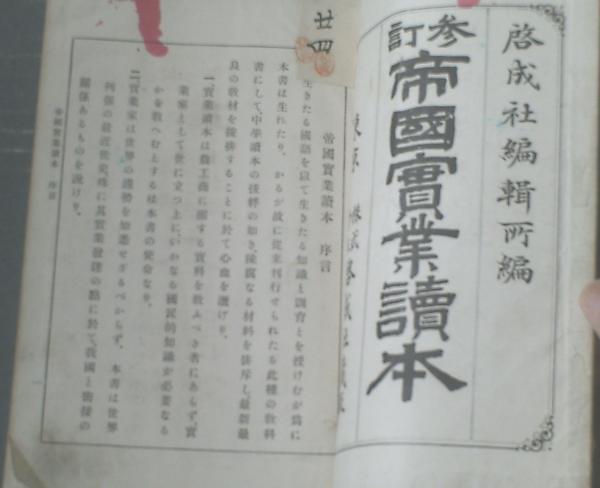 啓成社編輯所編
参訂
帝國實業讀本
廿四
帝國實業讀本 序言
生きたる國語を以て生きたる知識と訓育とを授けむが爲に
本書は生れたり、かるが故に從來刊行せられたる此種の教科
書にして、中學讀本の後塵の如き、陳腐なる材料を排斥し、最新最
良の教材を按排することに於て心血を濺げり。
一實業讀本は農工商に關する實科を教ふべき者にあらず、實
業家として世に立つ上に、いかなる國民的知識が必要なる
かを教へむとするは本書の使命なり。
一實業家は世界の趨勢を知悉せざるべからず、本書は世界
列强の最近世史殊に其實業發達の點に於て、我國と衝接の
關係あるものを説けり。
帝國實業讀本 序言